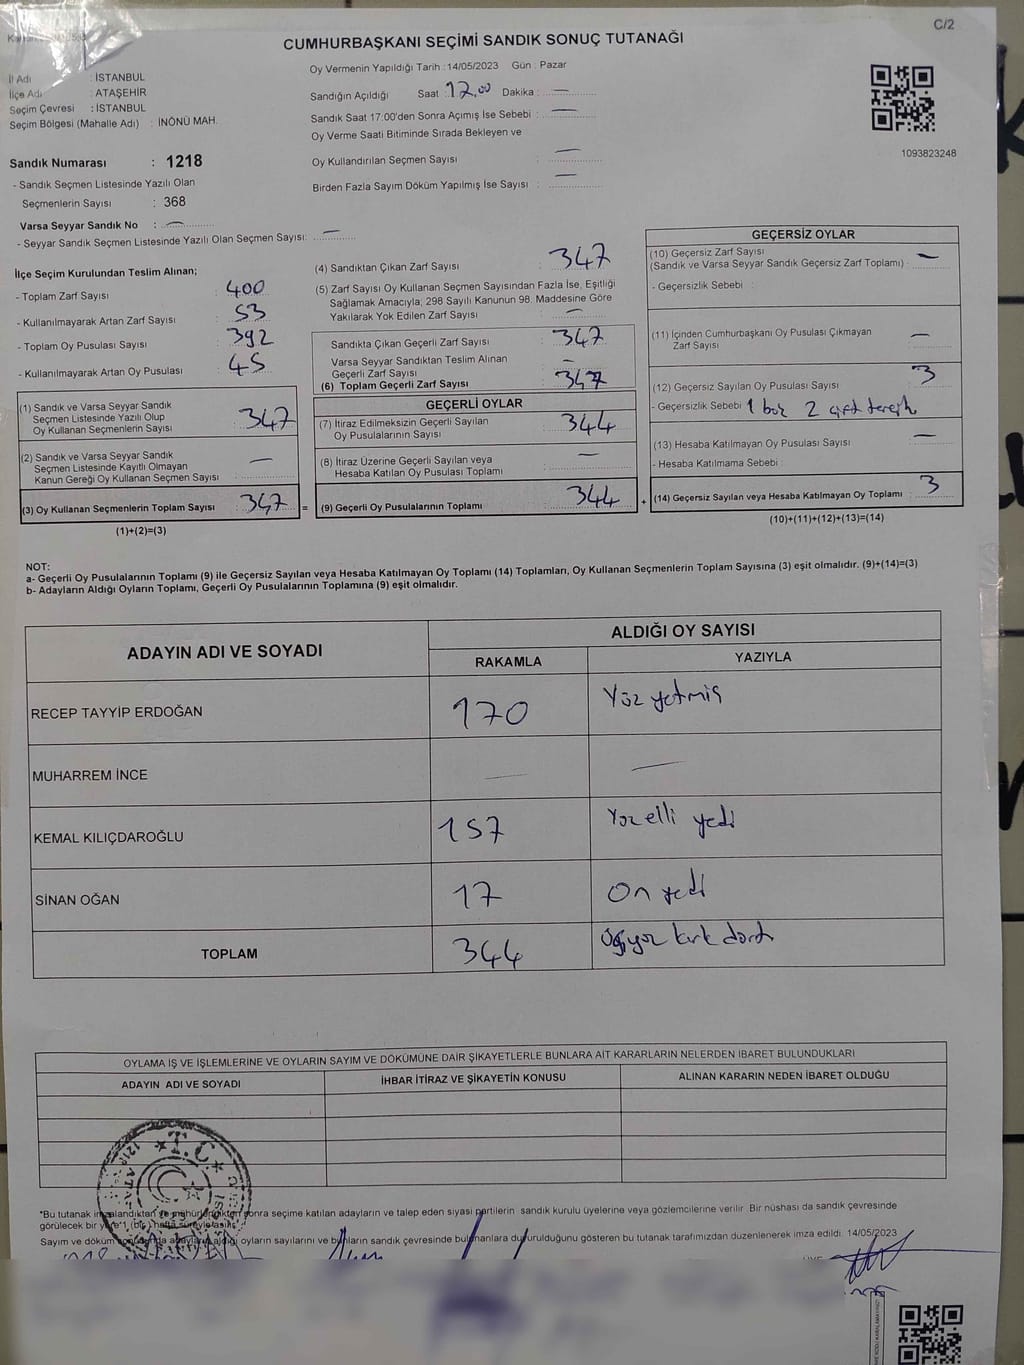 C/2
CUMHURBAŞKANI SEÇİMİ SANDIK SONUÇ TUTANAĞI
İl Adı : İSTANBUL
İlçe Adı : ATAŞEHİR
Seçim Çevresi : İSTANBUL
Seçim Bölgesi (Mahalle Adı) : İNÖNÜ MAH.
Sandık Numarası : 1218
- Sandık Seçmen Listesinde Yazılı Olan
Seçmenlerin Sayısı : 368
Varsa Seyyar Sandık No : —
- Seyyar Sandık Seçmen Listesinde Yazılı Olan Seçmen Sayısı: —
Oy Vermenin Yapıldığı Tarih : 14/05/2023 Gün : Pazar
Sandığın Açıldığı Saat : 17.00 Dakika : —
Sandık Saat 17:00'den Sonra Açımış İse Sebebi : —
Oy Verme Saati Bitiminde Sırada Bekleyen ve
Oy Kullandırılan Seçmen Sayısı : —
Birden Fazla Sayım Döküm Yapılmış İse Sayısı : —
1093823248
İlçe Seçim Kurulundan Teslim Alınan;
- Toplam Zarf Sayısı : 400
- Kullanılmayarak Artan Zarf Sayısı : 53
- Toplam Oy Pusulası Sayısı : 392
- Kullanılmayarak Artan Oy Pusulası : 45
(1) Sandık ve Varsa Seyyar Sandık
Seçmen Listesinde Yazılı Olup
Oy Kullanan Seçmenlerin Sayısı : 347
(2) Sandık ve Varsa Seyyar Sandık
Seçmen Listesinde Kayıtlı Olmayan
Kanun Gereği Oy Kullanan Seçmen Sayısı : —
(3) Oy Kullanan Seçmenlerin Toplam Sayısı : 347 =
(1)+(2)=(3)
(4) Sandıktan Çıkan Zarf Sayısı : 347
(5) Zarf Sayısı Oy Kullanan Seçmen Sayısından Fazla İse, Eşitliği
Sağlamak Amacıyla; 298 Sayılı Kanunun 98. Maddesine Göre
Yakılarak Yok Edilen Zarf Sayısı : —
Sandıkta Çıkan Geçerli Zarf Sayısı : 347
Varsa Seyyar Sandıktan Teslim Alınan
Geçerli Zarf Sayısı : —
(6) Toplam Geçerli Zarf Sayısı : 347
GEÇERLİ OYLAR
(7) İtiraz Edilmeksizin Geçerli Sayılan
Oy Pusulalarının Sayısı : 344
(8) İtiraz Üzerine Geçerli Sayılan veya
Hesaba Katılan Oy Pusulası Toplamı : —
(9) Geçerli Oy Pusulalarının Toplamı : 344 +
GEÇERSİZ OYLAR
(10) Geçersiz Zarf Sayısı
(Sandık ve Varsa Seyyar Sandık Geçersiz Zarf Toplamı) : —
- Geçersizlik Sebebi :
(11) İçinden Cumhurbaşkanı Oy Pusulası Çıkmayan
Zarf Sayısı : —
(12) Geçersiz Sayılan Oy Pusulası Sayısı : 3
- Geçersizlik Sebebi : 1 boş 2 çift tercih
(13) Hesaba Katılmayan Oy Pusulası Sayısı : —
- Hesaba Katılmama Sebebi :
(14) Geçersiz Sayılan veya Hesaba Katılmayan Oy Toplamı : 3
(10)+(11)+(12)+(13)=(14)
NOT:
a- Geçerli Oy Pusulalarının Toplamı (9) ile Geçersiz Sayılan veya Hesaba Katılmayan Oy Toplamı (14) Toplamları, Oy Kullanan Seçmenlerin Toplam Sayısına (3) eşit olmalıdır. (9)+(14)=(3)
b- Adayların Aldığı Oyların Toplamı, Geçerli Oy Pusulalarının Toplamına (9) eşit olmalıdır.
ADAYIN ADI VE SOYADI
ALDIĞI OY SAYISI
RAKAMLA YAZIYLA
RECEP TAYYİP ERDOĞAN 170 Yüz yetmiş
MUHARREM İNCE — —
KEMAL KILIÇDAROĞLU 157 Yüz elli yedi
SİNAN OĞAN 17 On yedi
TOPLAM 344 Üçyüz kırk dört
OYLAMA İŞ VE İŞLEMLERİNE VE OYLARIN SAYIM VE DÖKÜMÜNE DAİR ŞİKAYETLERLE BUNLARA AİT KARARLARIN NELERDEN İBARET BULUNDUKLARI
ADAYIN ADI VE SOYADI İHBAR İTİRAZ VE ŞİKAYETİN KONUSU ALINAN KARARIN NEDEN İBARET OLDUĞU
T.C.
*Bu tutanak imzalandıktan ve mühürlendikten sonra seçime katılan adayların ve talep eden siyasi partilerin sandık kurulu üyelerine veya gözlemcilerine verilir. Bir nüshası da sandık çevresinde
görülecek bir yere 1 (bir) hafta süreyle asılır.
Sayım ve döküm adayların aldığı oyların sayılarını ve bunların sandık çevresinde bulunanlara duyurulduğunu gösteren bu tutanak tarafımızdan düzenlenerek imza edildi. 14/05/2023